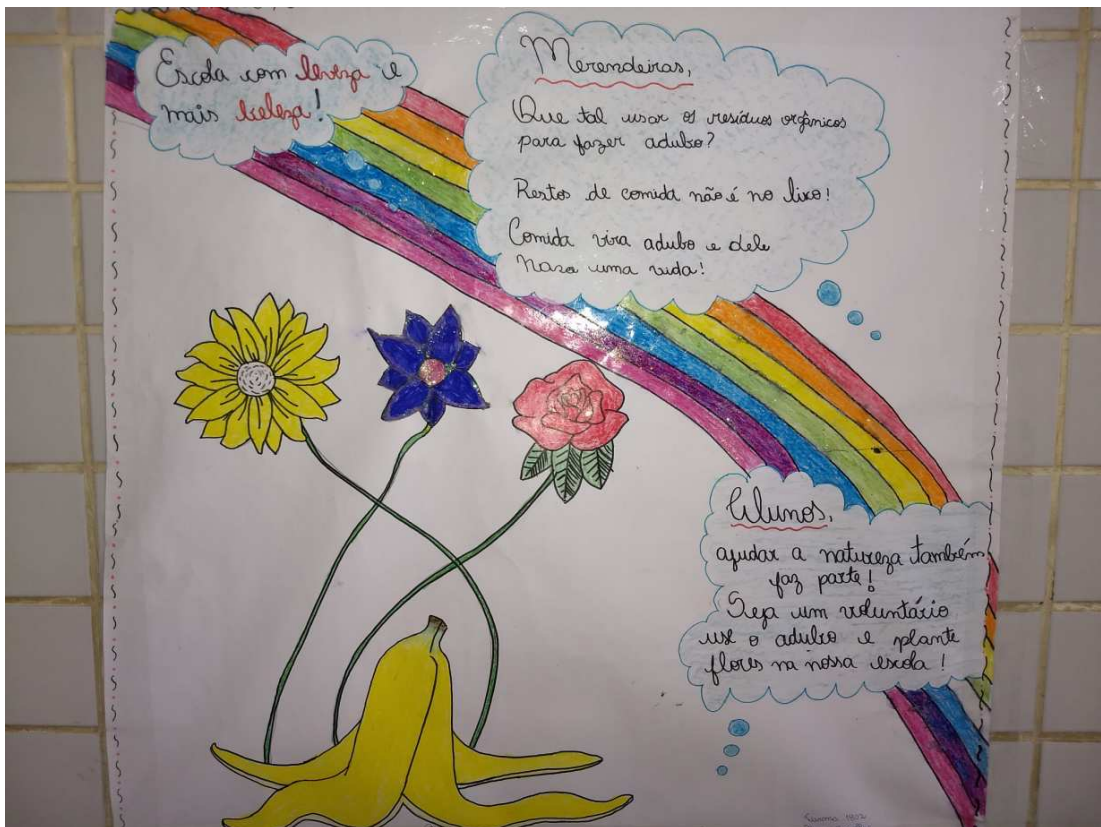 Escola com leveza e
mais beleza!
Merendeiras,
Que tal usar os resíduos orgânicos
para fazer adubo?
Restos de comida não é no lixo!
Comida vira adubo e dele
nasce uma vida!
Alunos,
ajudar a natureza também
faz parte!
Seja um voluntário
use o adubo e plante
flores na nossa escola!
Turma 1002